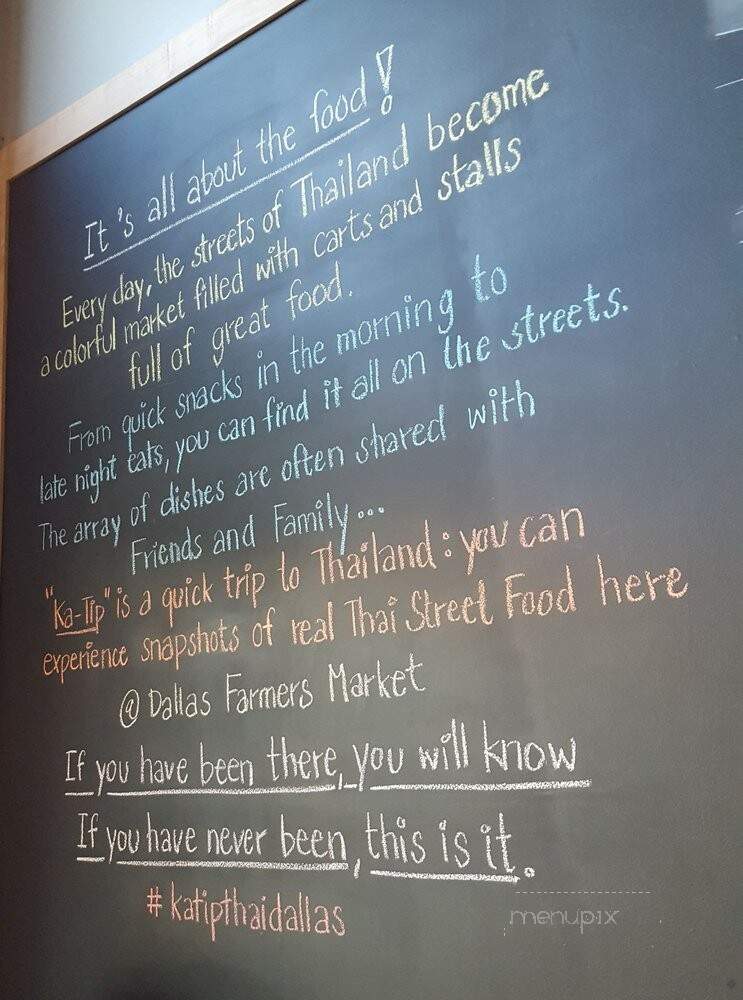 It's all about the food!
Every day, the streets of Thailand become
a colorful market filled with carts and stalls
full of great food.
From quick snacks in the morning to
late night eats, you can find it all on the streets.
The array of dishes are often shared with
Friends and Family...
"Ka-Tip" is a quick trip to Thailand: you can
experience snapshots of real Thai Street Food here
@ Dallas Farmers Market
If you have been there, you will know
If you have never been, this is it.
# katipthaidallas
menupix